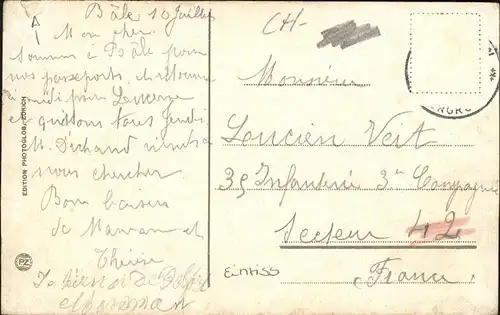 Bâle 10 Juillet
Mon cher
sommes à Bâle pour
nos passeports, et retourne
à midi pour Lucerne
et quittons tous Jeudi
M. Dechaud viendra
nous chercher
Bons baisers
de Maman et
Thérèse
CH-
Monsieur
Loucien Veit
35 Infanterie 3me Compagnie
Secteur 42
France
Eintiss
EDITION PHOTOGLOB, ZÜRICH
PZ